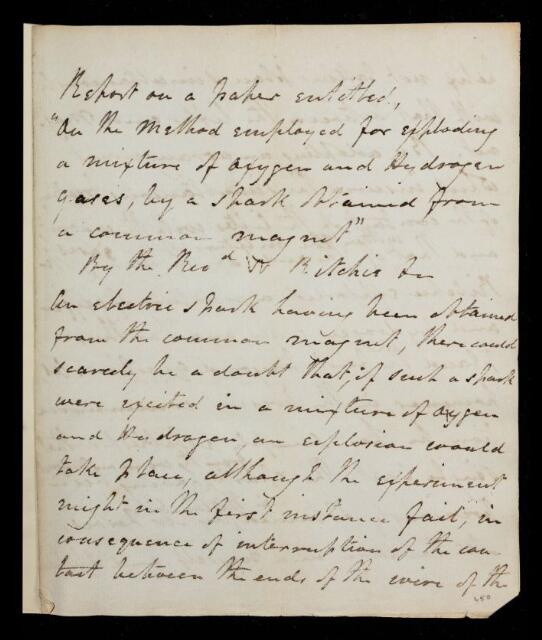 Report on a paper entitled,
"On the Method employed for exploding
a mixture of oxygen and Hydrogen
gases, by a spark obtained from
a common magnet"
By the Revd W Ritchie
An electric spark having been obtained
from the common magnet, there could
scarcely be a doubt that, if such a spark
were excited in a mixture of oxygen
and Hydrogen, an explosion would
take place, although the experiment
might in the first instance fail, in
consequence of interruption of the con
tact between the ends of the wire of the